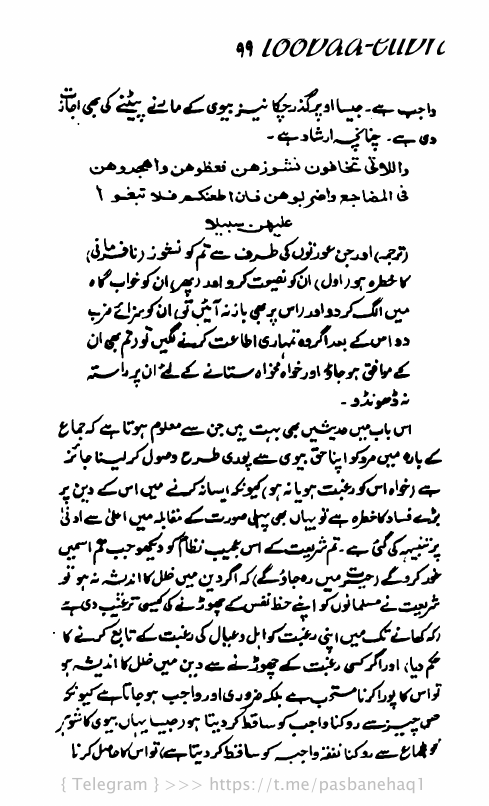 ۹۹
واجب ہے۔ جیسا اوپر گذر چکا نیز بیوی کے مارنے پیٹنے کی بھی اجازت
دی ہے۔ چنانچہ ارشاد ہے۔
واللاتی تخافون نشوزهن فعظوهن واهجروهن
فی المضاجع واضربوهن فان اطعنکم فلا تبغوا
علیهن سبیلا
(ترجمہ) اور جن عورتوں کی طرف سے تم کو نشوز (نافرمانی)
کا خطرہ ہو (اول) ان کو نصیحت کرو اور (پھر) ان کو خواب گاہ
میں الگ کردو اور (اس پر بھی باز نہ آئیں تو) ان کو سزائے ضرب
دو اس کے بعد اگر وہ تمہاری اطاعت کرنے لگیں تو (تم بھی ان
کے موافق ہوجاؤ اور خواہ مخواہ ستانے کے لئے ان پر راستہ
نہ ڈھونڈو۔
اس باب میں حدیثیں بھی بہت ہیں جن سے معلوم ہوتا ہے کہ جماع
کے بارہ میں مرد کو اپنا حق بیوی سے پوری طرح وصول کرلینا جائز
ہے (خواہ اس کو رغبت ہو یا نہ ہو) کیونکہ ایسا نہ کرنے میں اس کے دین پر
بڑے فساد کا خطرہ ہے تو یہاں بھی پہلی صورت کے مقابلہ میں اعلیٰ سے ادنیٰ
پر تنبیہ کی گئی ہے۔ تم شریعت کے اس عجیب نظام کو دیکھو جب تم اسمیں
غور کروگے (حیرت میں رہ جاؤگے) کہ اگر دین میں خلل کا اندیشہ نہ ہو تو
شریعت نے مسلمانوں کو اپنے حظ نفس کے چھوڑنے کی کیسی ترغیب دی ہے
(کہ کھانے تک میں اپنی رغبت کو اہل و عیال کی رغبت کے تابع کرنے کا
حکم دیا) اور اگر کسی رغبت کے چھوڑنے سے دین میں خلل کا اندیشہ ہو
تو اس کا پورا کرنا مستحب ہے بلکہ ضروری اور واجب ہوجاتا ہے کیونکہ
جس چیز سے روکنا واجب کو ساقط کردیتا ہو (جیسا یہاں بیوی کا شوہر
کو جماع سے روکنا نفقہ واجبہ کو ساقط کردیتا ہے) تو اس کا حاصل کرنا
{ Telegram } >>> https://t.me/pasbanehaq1